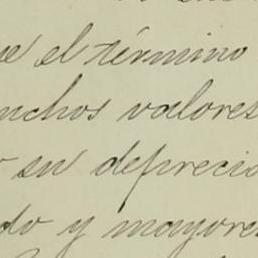 e el término
nchos valores
su deprecia
do y mayores